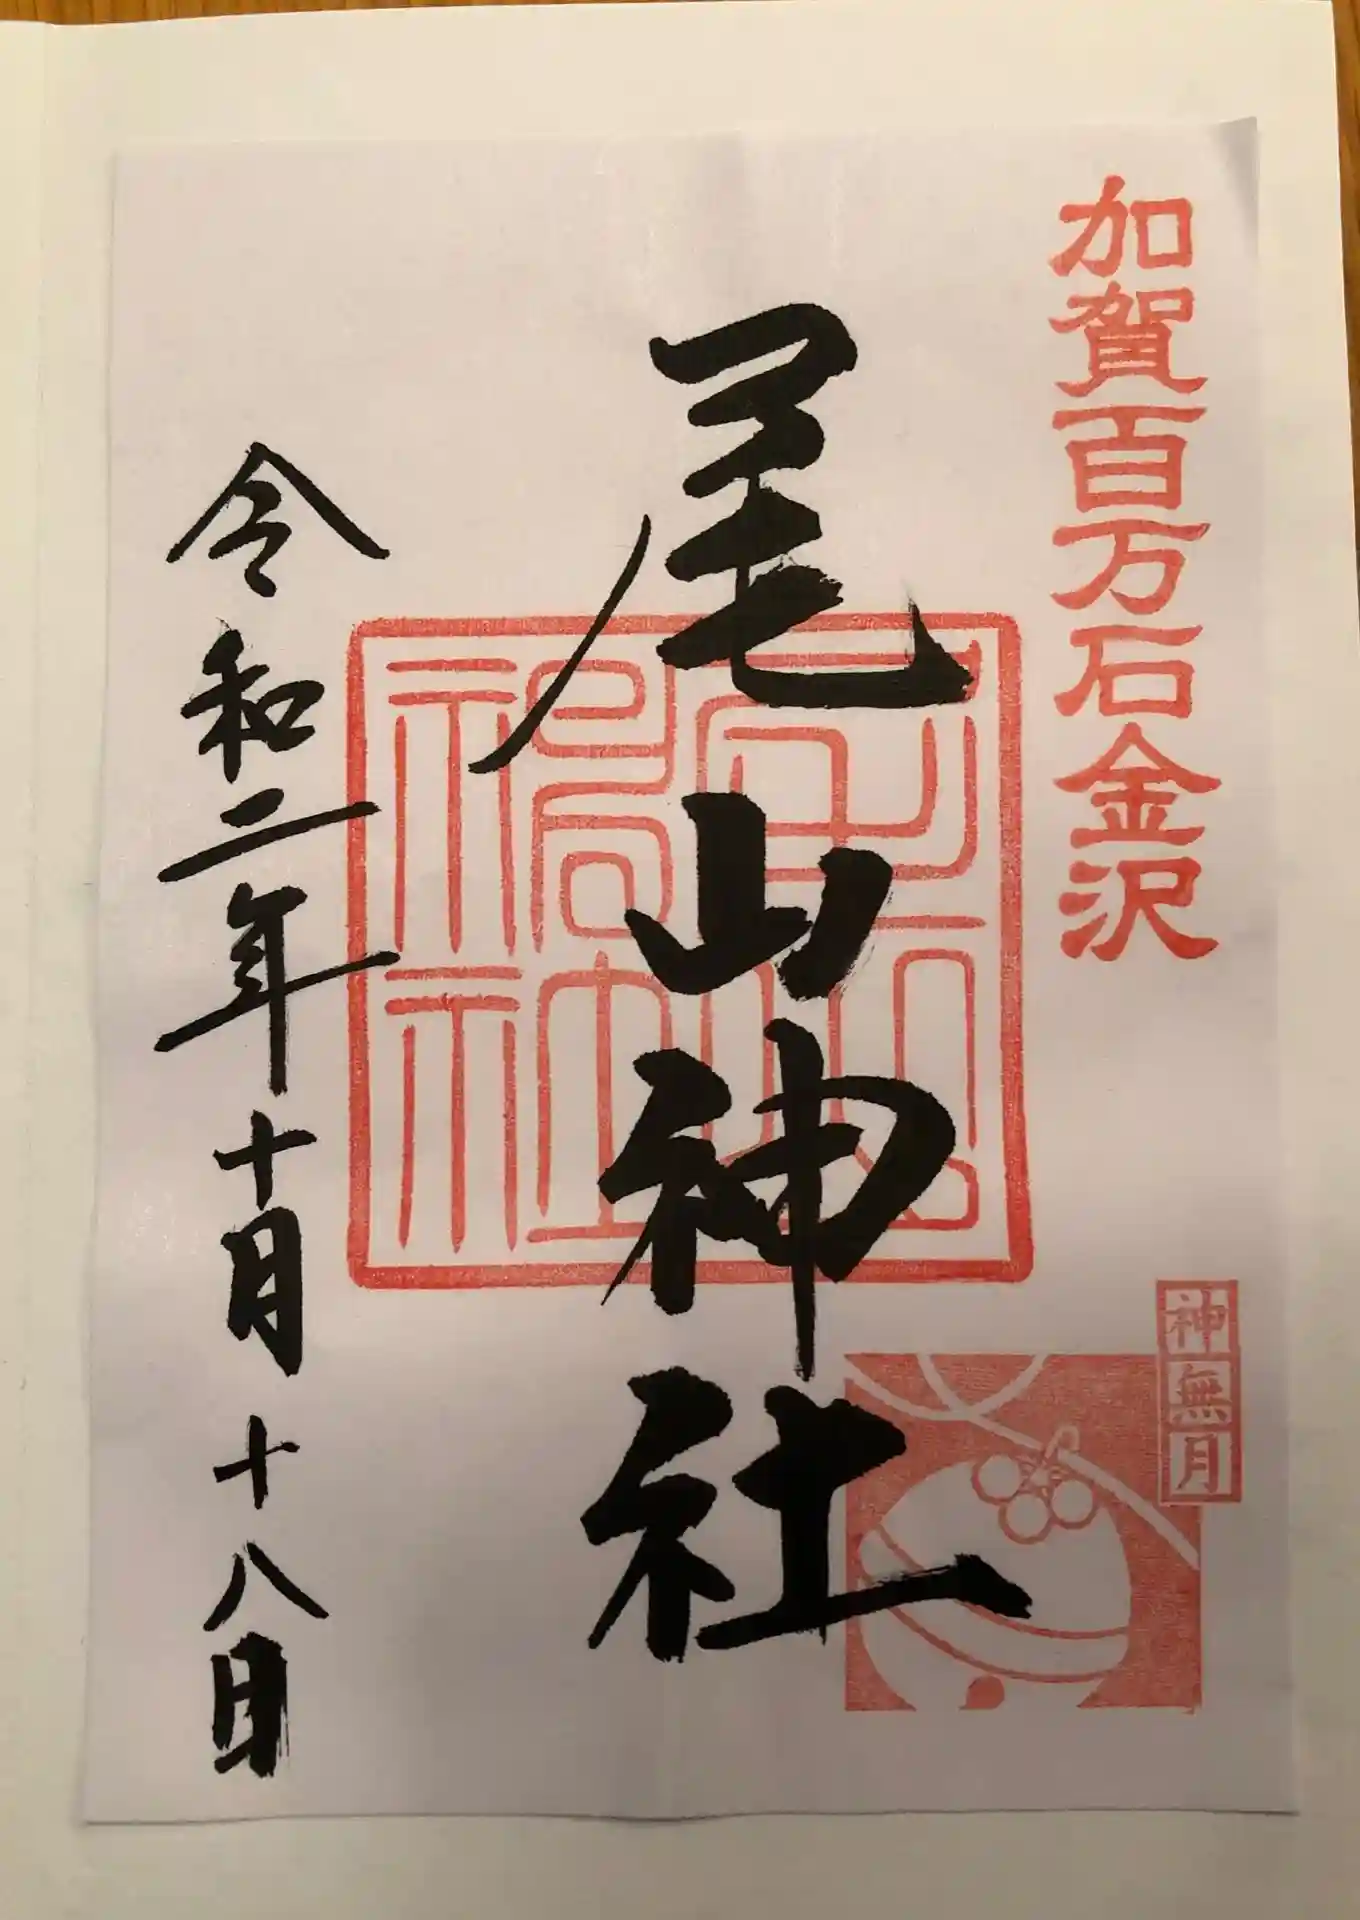 加賀百万石金沢
尾山神社
尾山神社
神無月
令和二年十月十八日